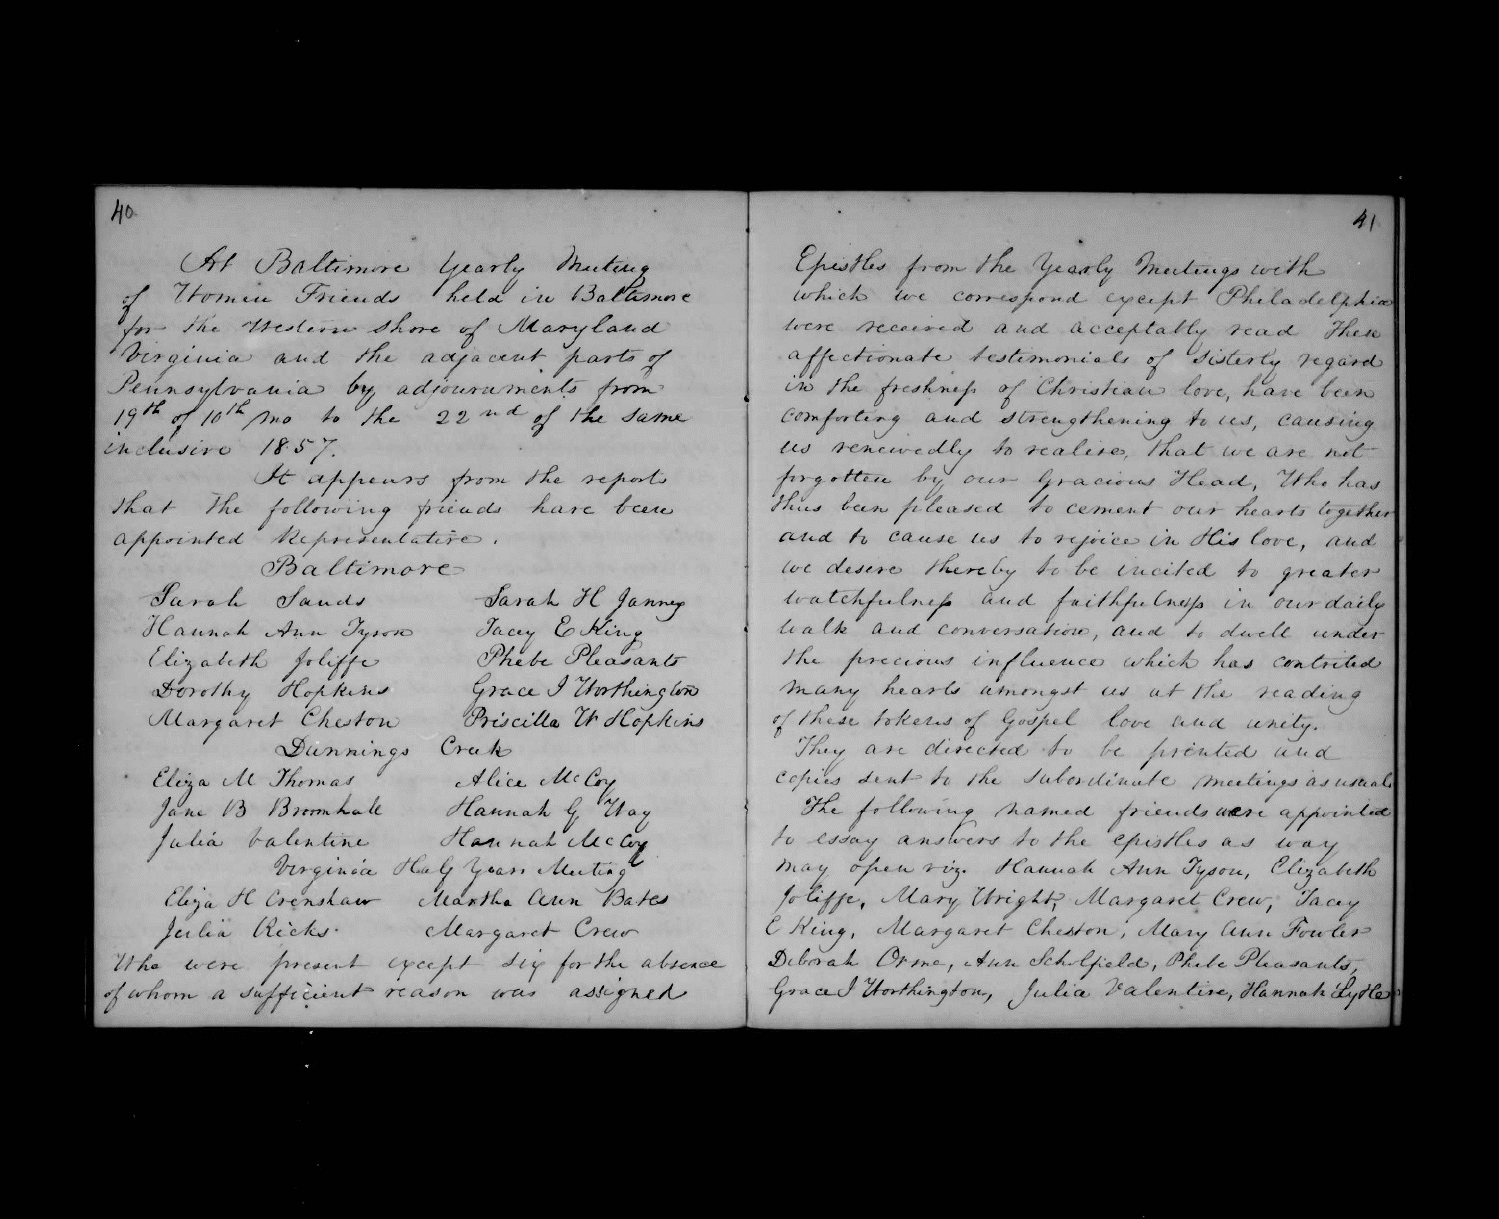 40
At Baltimore Yearly Meeting
of Women Friends held in Baltimore
for the Western shore of Maryland
Virginia and the adjacent parts of
Pennsylvania by adjournments from
19th of 10th mo to the 22nd of the same
inclusive 1857.
It appears from the reports
that the following friends have been
appointed Representative.
Baltimore
Sarah Sands Sarah H Janney
Hannah Ann Tyson Tacey E King
Elizabeth Joliffe Phebe Pleasants
Dorothy Hopkins Grace J Worthington
Margaret Cheston Priscilla W Hopkins
Dunnings Creek
Eliza M Thomas Alice McCoy
Jane B Broomhall Hannah G Way
Julia Valentine Hannah McCoy
Virginia Half Years Meeting
Eliza H Crenshaw Martha Ann Bates
Julia Ricks. Margaret Crew
Who were present except six for the absence
of whom a sufficient reason was assigned
41
Epistles from the Yearly Meetings with
which we correspond except Philadelphia
were received and acceptably read These
affectionate testimonials of sisterly regard
in the freshness of Christian love, have been
comforting and strengthening to us, causing
us renewedly to realise, that we are not
forgotten by our Gracious Head, Who has
thus been pleased to cement our hearts together
and to cause us to rejoice in His love, and
we desire thereby to be incited to greater
watchfulness and faithfulness in our daily
walk and conversation, and to dwell under
the precious influence which has contrited
many hearts amongst us at the reading
of these tokens of Gospel love and unity.
They are directed to be printed and
copies sent to the subordinate meetings as usual.
The following named friends were appointed
to essay answers to the epistles as way
may open viz. Hannah Ann Tyson, Elizabeth
Joliffe, Mary Wright, Margaret Crew, Tacey
E King, Margaret Cheston, Mary Ann Fowler
Deborah Orme, Ann Scholfield, Phebe Pleasants,
Grace J Worthington, Julia Valentine, Hannah Lytle